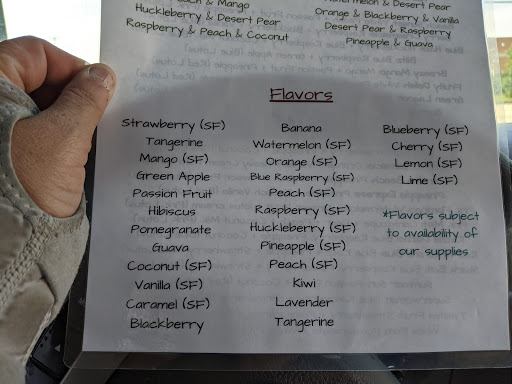 Peach & Mango
Huckleberry & Desert Pear
Raspberry & Peach & Coconut
Watermelon & Desert Pear
Orange & Blackberry & Vanilla
Desert Pear & Raspberry
Pineapple & Guava
Flavors
Strawberry (SF)
Tangerine
Mango (SF)
Green Apple
Passion Fruit
Hibiscus
Pomegranate
Guava
Coconut (SF)
Vanilla (SF)
Caramel (SF)
Blackberry
Banana
Watermelon (SF)
Orange (SF)
Blue Raspberry (SF)
Peach (SF)
Raspberry (SF)
Huckleberry (SF)
Pineapple (SF)
Peach (SF)
Kiwi
Lavender
Tangerine
Blueberry (SF)
Cherry (SF)
Lemon (SF)
Lime (SF)
*Flavors subject
to availability of
our supplies